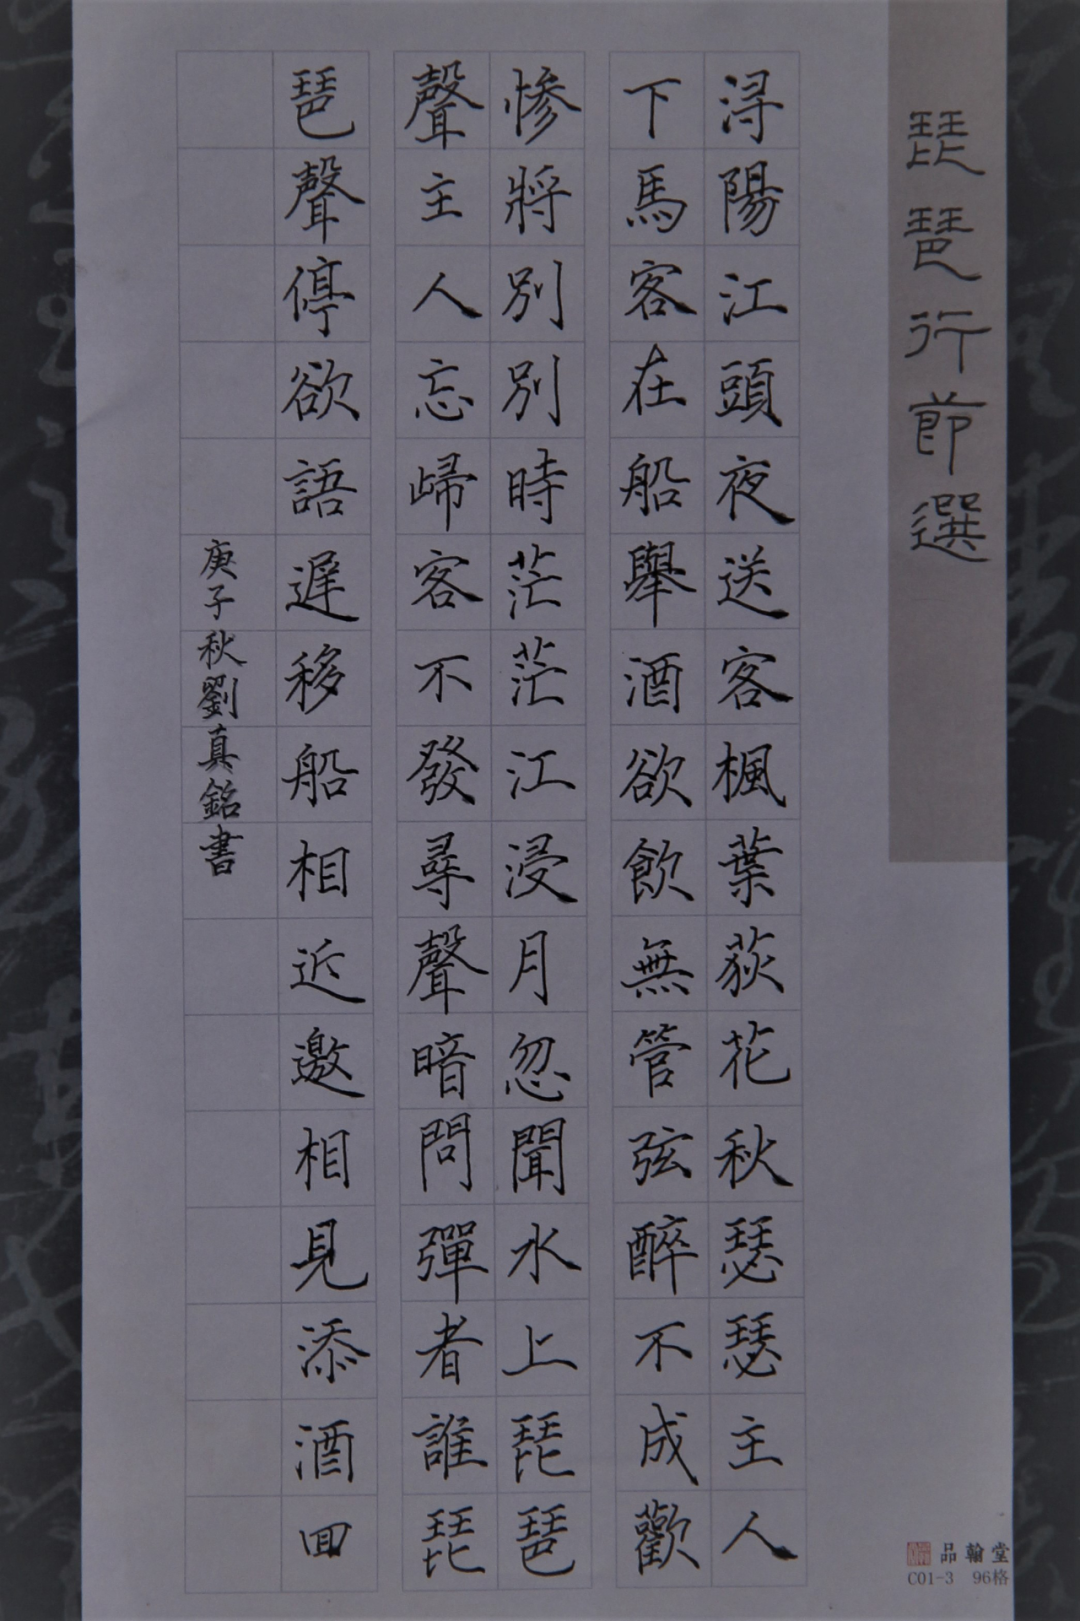 琵琶行節選
浔陽江頭夜送客楓葉荻花秋瑟瑟主人
下馬客在船舉酒欲飲無管弦醉不成歡
慘將別別時茫茫江浸月忽聞水上琵琶
聲主人忘歸客不發尋聲暗問彈者誰琵
琶聲停欲語遲移船相近邀相見添酒回
庚子秋劉真銘書
品翰堂
C01-3 96格